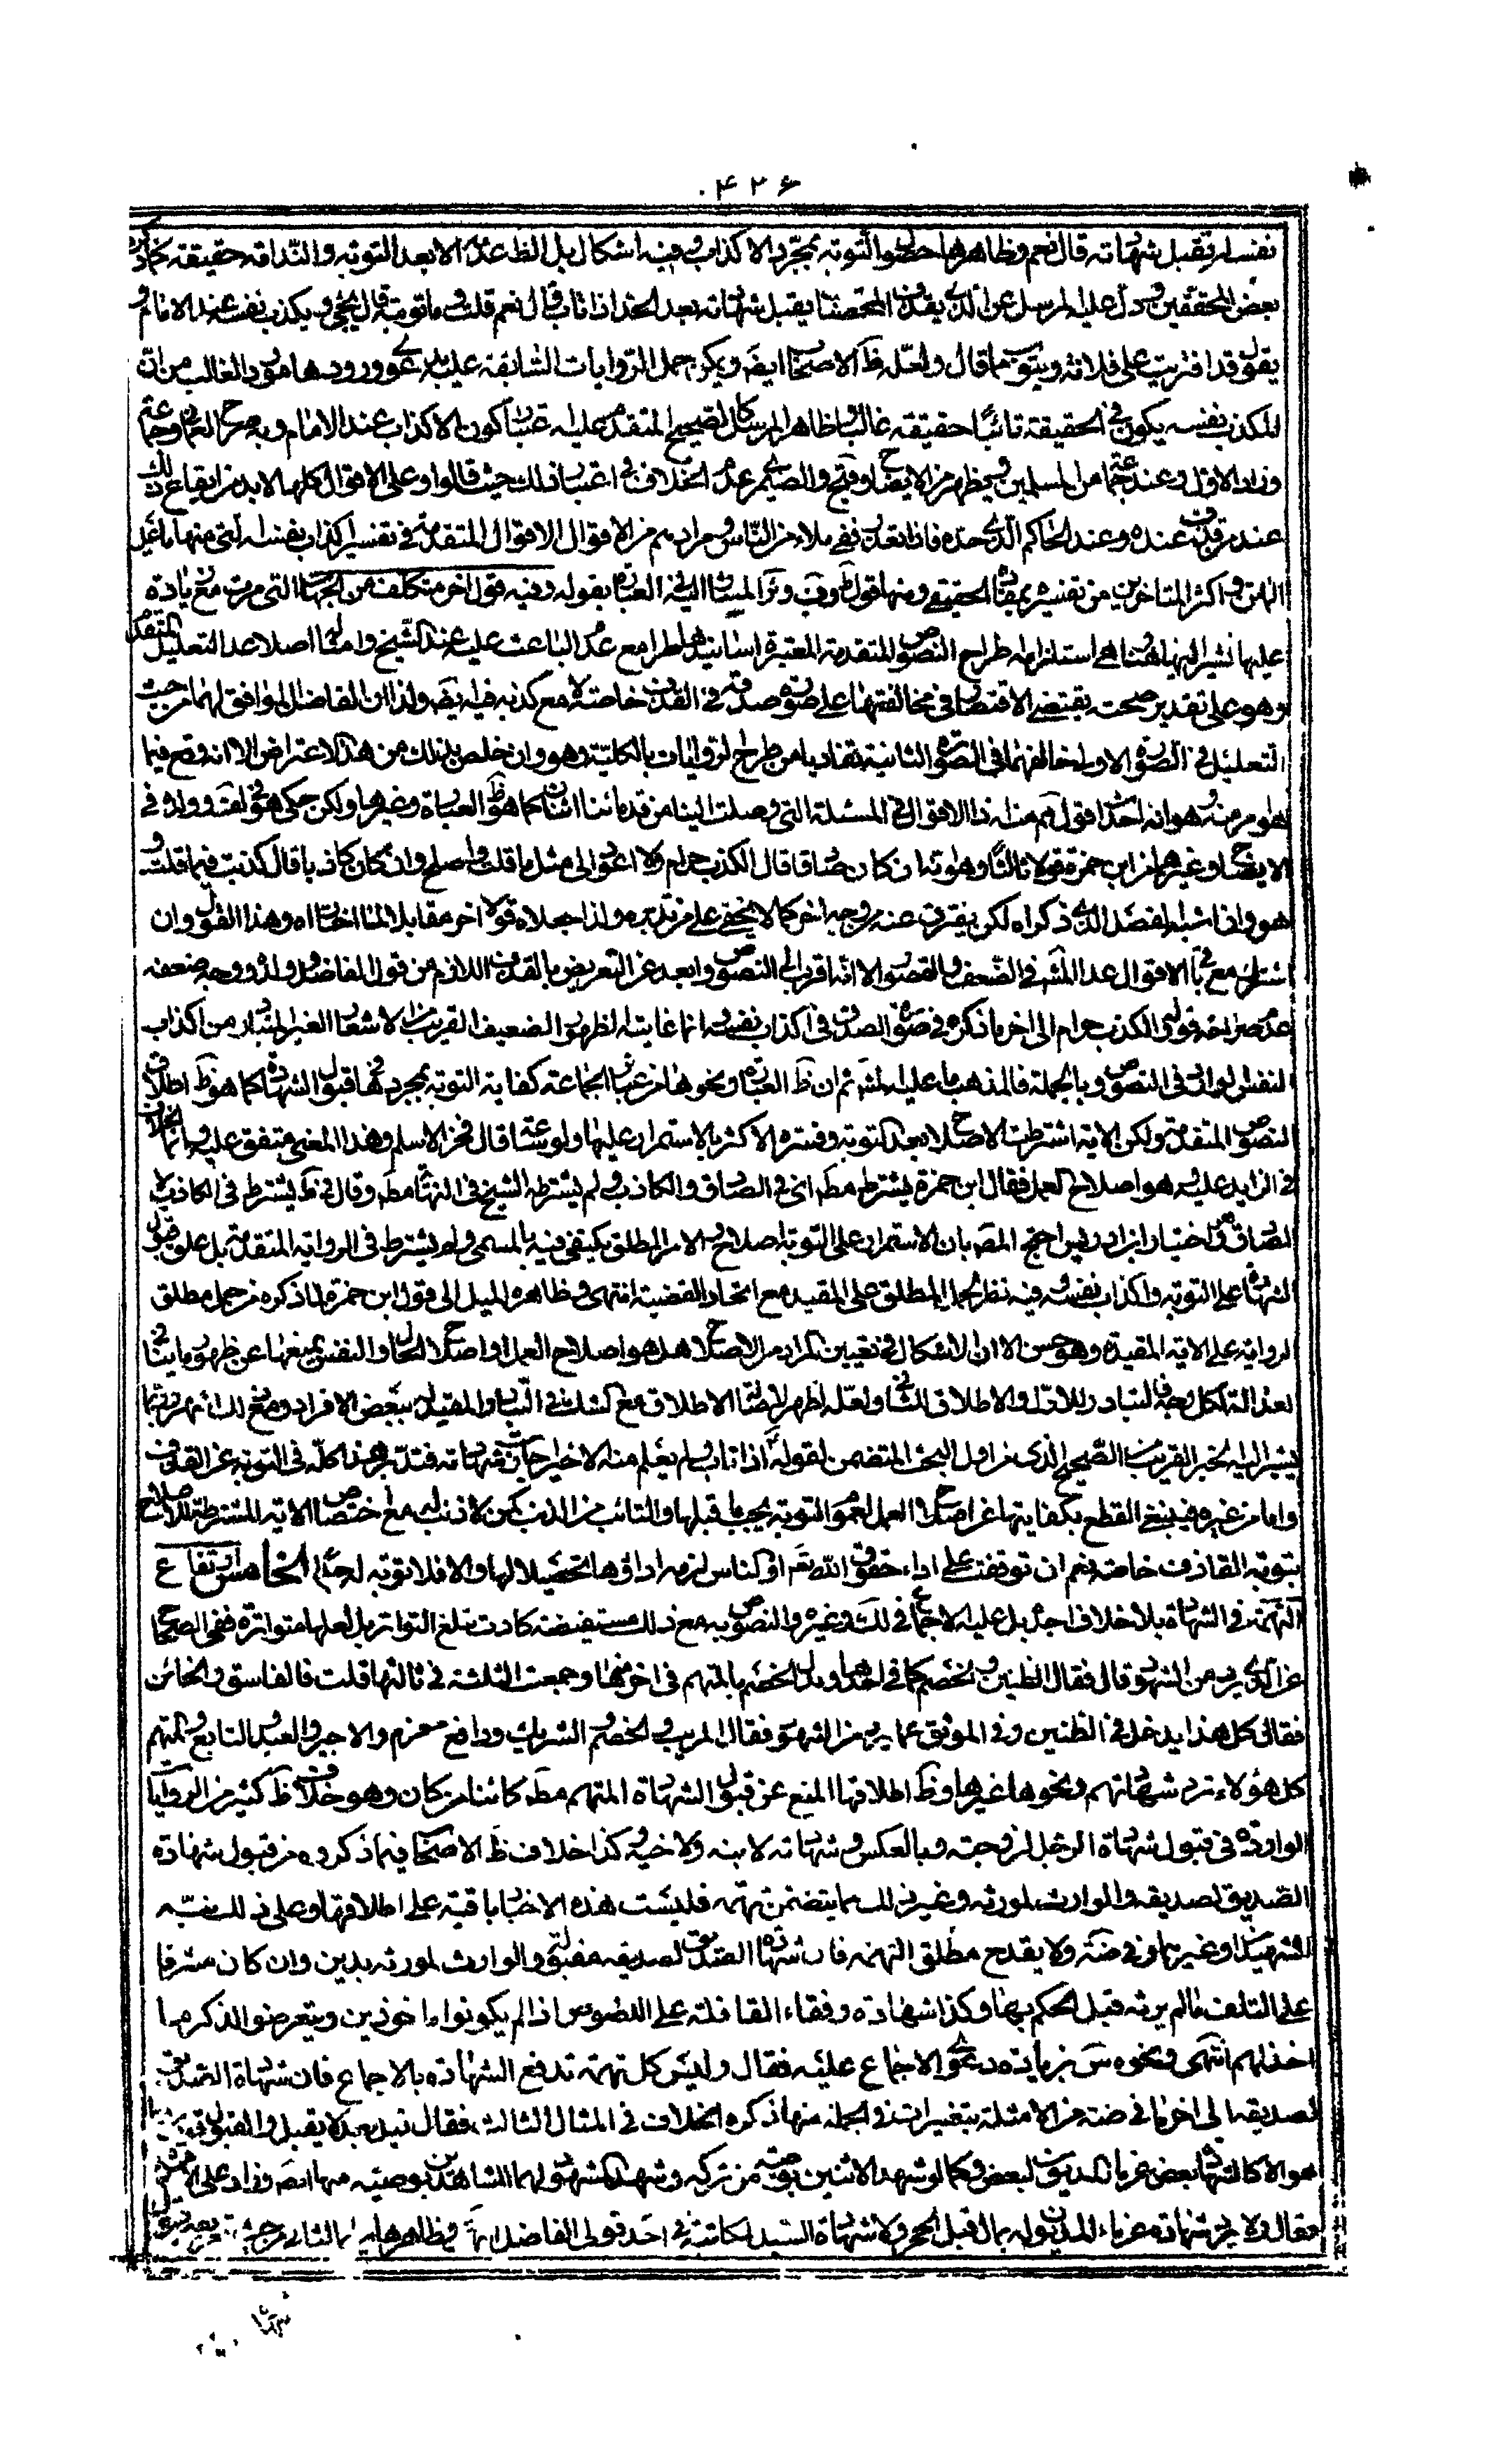 ۴۲۶
نفسه اتقبل شهادته قال نعم وظاهرها حصول التوبة بمجرد الاكذاب وفيه اشكال بل الظ عدمه الا بعد التوبة والندامة حقيقة كما ذكره
بعض المحققين ودل عليه المرسل عن الذى يقذف المحصنات يقبل شهادته بعد الحد اذا تاب قال نعم قلت وما توبته قال يجئ ويكذب نفسه عند الامام و
يقول قد افتريت على فلانة ويتوب مما قال ولعله ظ الاصحاب ايضَ ويمكن حمل الروايات السابقة عليه بدعوى ورودها مورد الغالب من ان
المكذب نفسه يكون فى الحقيقة تائبًا حقيقة غالبا وظاهر المرسل كالصحيح المتقدم عليه اعتبار كون الاكذاب عند الامام وبه صرح العماني وجماعة
وزاد الاول وعند جماعة من المسلمين ويظهر من الايضاح وقيح والصيمرى عدم الخلاف فى اعتبار ذلك حيث قالوا وعلى الاقوال كلها لابد من ايقاع ذلك
عند من قذف عنده وعند الحاكم الذى حده فان تعذر ففى ملاء من الناس ومرادهم من الاقوال الاقوال المتقدمة فى تفسير اكذاب نفسه التى منها ما عليه
الماتن واكثر المتاخرين من تفسيره بمعناه الحقيقى ومنها قول ط وف وئر المشار اليه فى العبارة بقوله وفيه قول اخر متكلف من الجهات التى مرت مع زيادة
عليها نشير اليها هنا هى استلزامه طراح النصوص المتقدمة المعتبرة اسانيدها طرا مع عدم الباعث عليه عند الشيخ وامثاله اصلا عدا التعليل المتقدم
وهو على تقدير صحته يقتضى الاقتصار فى مخالفتها على صورة صدقه فى القذف خاصة لا مع كذبه فيه ايضَ ولذا ان الفاضل الموافق لهما من حيث
التعليل فى الصورة الاولى خالفهما فى الصورة الثانية تفاديا من طراح الروايات بالكلية وهو وان خلص بذلك من هذا الاعتراض الا انه وقع فيما
هو مر منه وهو انه احداث قول ثم هذا الاقوال فى المسئلة التى وصلت الينا من قدمائنا اثنان كما هو ظ العبارة وغيرها ولكن حكى هو فى لف وولده فى
الايضاح وغيرهما من ابن حمزة قولا ثالثًا وهو انه ان كان صادقا قال الكذب حرام ولا اعود الى مثل ما قلت واصلح وان كان كاذبا قال كذبت فيما قلت و
هو وان اشبه المفصل الذى ذكراه لكن يفترق عنه من وجه اخر كما لا يخفى على من تدبره ولذا جعلاه قولا اخر مقابلا لما اختاراه وهذا القول وان
اشترك مع باقى الاقوال عدا المشَ فى الضعف والقصور الا انه اقرب الى النصوص وابعد عن التعريض بالقذف اللازم من قول الفاضل وولده ووجه ضعفه
عدم صراحة قوله الكذب حرام الى اخر ما ذكره فى صورة الصدق فى اكذاب نفسه انما غايته الظهور الضعيف القريب من الاشعار الغير المتبادر من اكذاب
النفس الوارد فى النصوص وبالجملة فالمذهب ما عليه المشَ ثم ان ظ العبارة ونحوها من عبائر الجماعة كفاية التوبة بمجردها فى قبول الشهادة كما هو ظ اطلاق
النصوص المتقدمة ولكن الاية اشترطت الاصلاح بعد التوبة وفسره الاكثر بالاستمرار عليها ولو ساعة قال فخر الاسلام وهذا المعنى متفق عليه وانما الخلاف
فى الزايد عليه وهو اصلاح العمل فقال ابن حمزة يشترط مطَ اى فى الصادق والكاذب ولم يشترطه الشيخ فى النهاية مطَ وقال فى ط يشترط فى الكاذب لا
الصادق وهو اختيار ابن ادريس احتج المصَ بان الاستمرار على التوبة اصلاح والامر المطلق يكتفى فيه بالمسمى ولم يشترط فى الرواية المتقدمة بل علق قبول
الشهادة على التوبة واكذاب نفسه وفيه نظر لحمل المطلق على المقيد مع اتحاد القضية انتهى وظاهره الميل الى قول ابن حمزة لما ذكره من حمل مطلق
الرواية على الاية المقيدة وهو حسن الا ان الاشكال فى تعيين المراد من الاصلاح هل هو اصلاح العمل او اصلاح الحال والنفس بمنعها عن ظهور ما ينافى
العدالة لكل وجه التبادر للاول والاطلاق للثانى ولعله اظهر لاصالة الاطلاق مع الشك فى التبادر المقيد ببعض الافراد ومع ذلك اشهر وربما
يشير اليه الخبر القريب من الصحيح الذى مر اول البحث المتضمن لقوله ع اذا تاب ولم يعلم منه الا خير جازت شهادته فتدبر هذا كله فى التوبة عن القذف
واما من غيره فينبغى القطع بكفايتها عن اصلاح العمل لعموم التوبة يجب ما قبلها والتائب من الذنب كمن لا ذنب له مع اختصاص الاية المشترطة للاصلاح
بتوبة القاذف خاصة نعم ان توقفت على اداء حقوق الله تعَ او الناس لزمه اداؤها تحصيلا لها والا فلا توبة له جدا الخامس ارتفاع
التهمة فى الشهادة بلا خلاف اجده بل عليه الاجماع فى لك وغيره والنصوص به مع ذلك مستفيضة كادت تبلغ التواتر بل لعلها متواترة ففى الصحاح
عن الذى يرد من الشهود قال فقال الظنين والخصم كما فى احدها وبدل الخصم بالمتهم فى اخر منها وجمعت الثلثة فى ثالثها قلت فالفاسق والخائن
فقال كل هذا يدخل فى الظنين وفى الموثق عما يرد من الشهود فقال المريب والخصم الشريك ودافع مغرم والاجير والعبد والتابع والمتهم
كل هؤلاء ترد شهاداتهم ونحوها غيرها وظ اطلاقها المنع عن قبول الشهادة المتهم مطَ كائنا من كان وهو خلاف ظ كثير من الروايات
الواردة فى قبول شهادة الرجل لزوجته وبالعكس وشهادته لابنه ولاخيه وكذا خلاف ظ الاصحاب فيما ذكروه من قبول شهادة
الصديق لصديقه والوارث لمورثه وغير ذلك مما يتضمن تهمة فليست هذه الاخبار باقية على اطلاقها وعلى ذلك نبه
الشهيدان وغيرهما وفى ضة ولا يقدح مطلق التهمة فان شهادة الصديق لصديقه مقبولة والوارث لمورثه بدين وان كان مشرفا
على التلف ما لم يرثه قبل الحكم بها وكذا شهادة رفقاء القافلة على اللصوص اذا لم يكونوا ماخوذين ويتعرضوا لذكر ما
اخذ لهم انتهى ونحوه س بزيادة دعوى الاجماع عليه فقال وليس كل تهمة تدفع الشهادة بالاجماع فان شهادة الصديق
لصديقه الى اخر ما فى ضة من الامثلة بتغيير ما فى الجملة منها ذكره الخلاف فى المثال الثالث فقال فيه بعده لا يقبل والقبول قوى وما
هو الا كالشهادة لبعض غرماء المديون لبعض وكما لو شهد الاثنين بوصية من تركة وشهد المشهود لهما للشاهدين بوصية منها ايضَ وزاد على الامثلة
فقال ولا يرد شهادة غرماء المديون له بمال قبل الحجر ولا شهادة السيد لمكاتبه فى احد قولى الفاضل